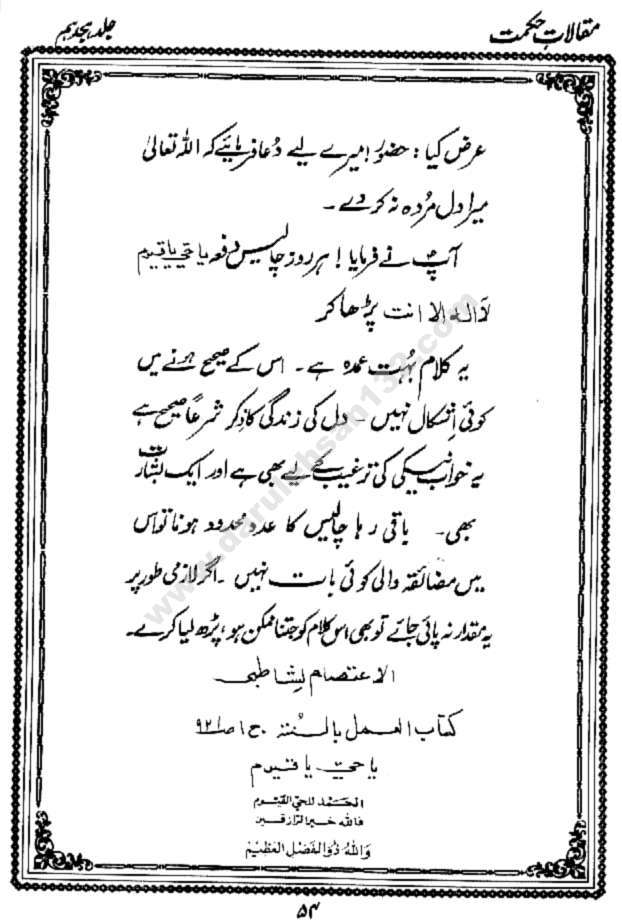 مقالات حکمت
جلد ہجدہم
عرض کیا : حضور! میرے لیے دُعا فرمائیے کہ اللہ تعالیٰ
میرا دل مُردہ نہ کر دے ۔
آپؐ نے فرمایا ! ہر روز چالیس دفعہ یا حیّ یا قیوم
لا الہ الا انت پڑھا کر
یہ کلام بہت عمدہ ہے ۔ اس کے صحیح ہونے میں
کوئی اِشکال نہیں ۔ دل کی زندگی کا ذِکر شرعاً صحیح ہے
یہ خواب نیکی کی ترغیب کے لیے بھی ہے اور ایک بشارت
بھی ۔ باقی رہا چالیس کا عدد محدود ہونا تو اس
میں مضائقہ والی کوئی بات نہیں ۔ اگر لازمی طور پر
یہ مقدار نہ پائی جائے تو بھی اس کلام کو جتنا ممکن ہو، پڑھ لیا کرے ۔
الاعتصام لشاطبی
کتاب العمل بالسُنّۃ ج ۱ صـ ۹۲
یا حیّ یا قیوم
الحمد للحی القیوم
فاللہ خیر الرازقین
واللہُ ذُو الفَضلِ العَظِیم
۵۴
www.darulehsan133.com